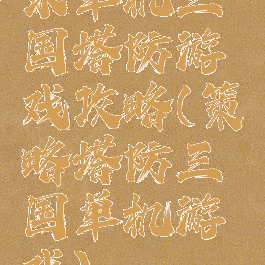 策单机三
国塔防游
戏攻略(策
略塔防三
国单机游
戏)